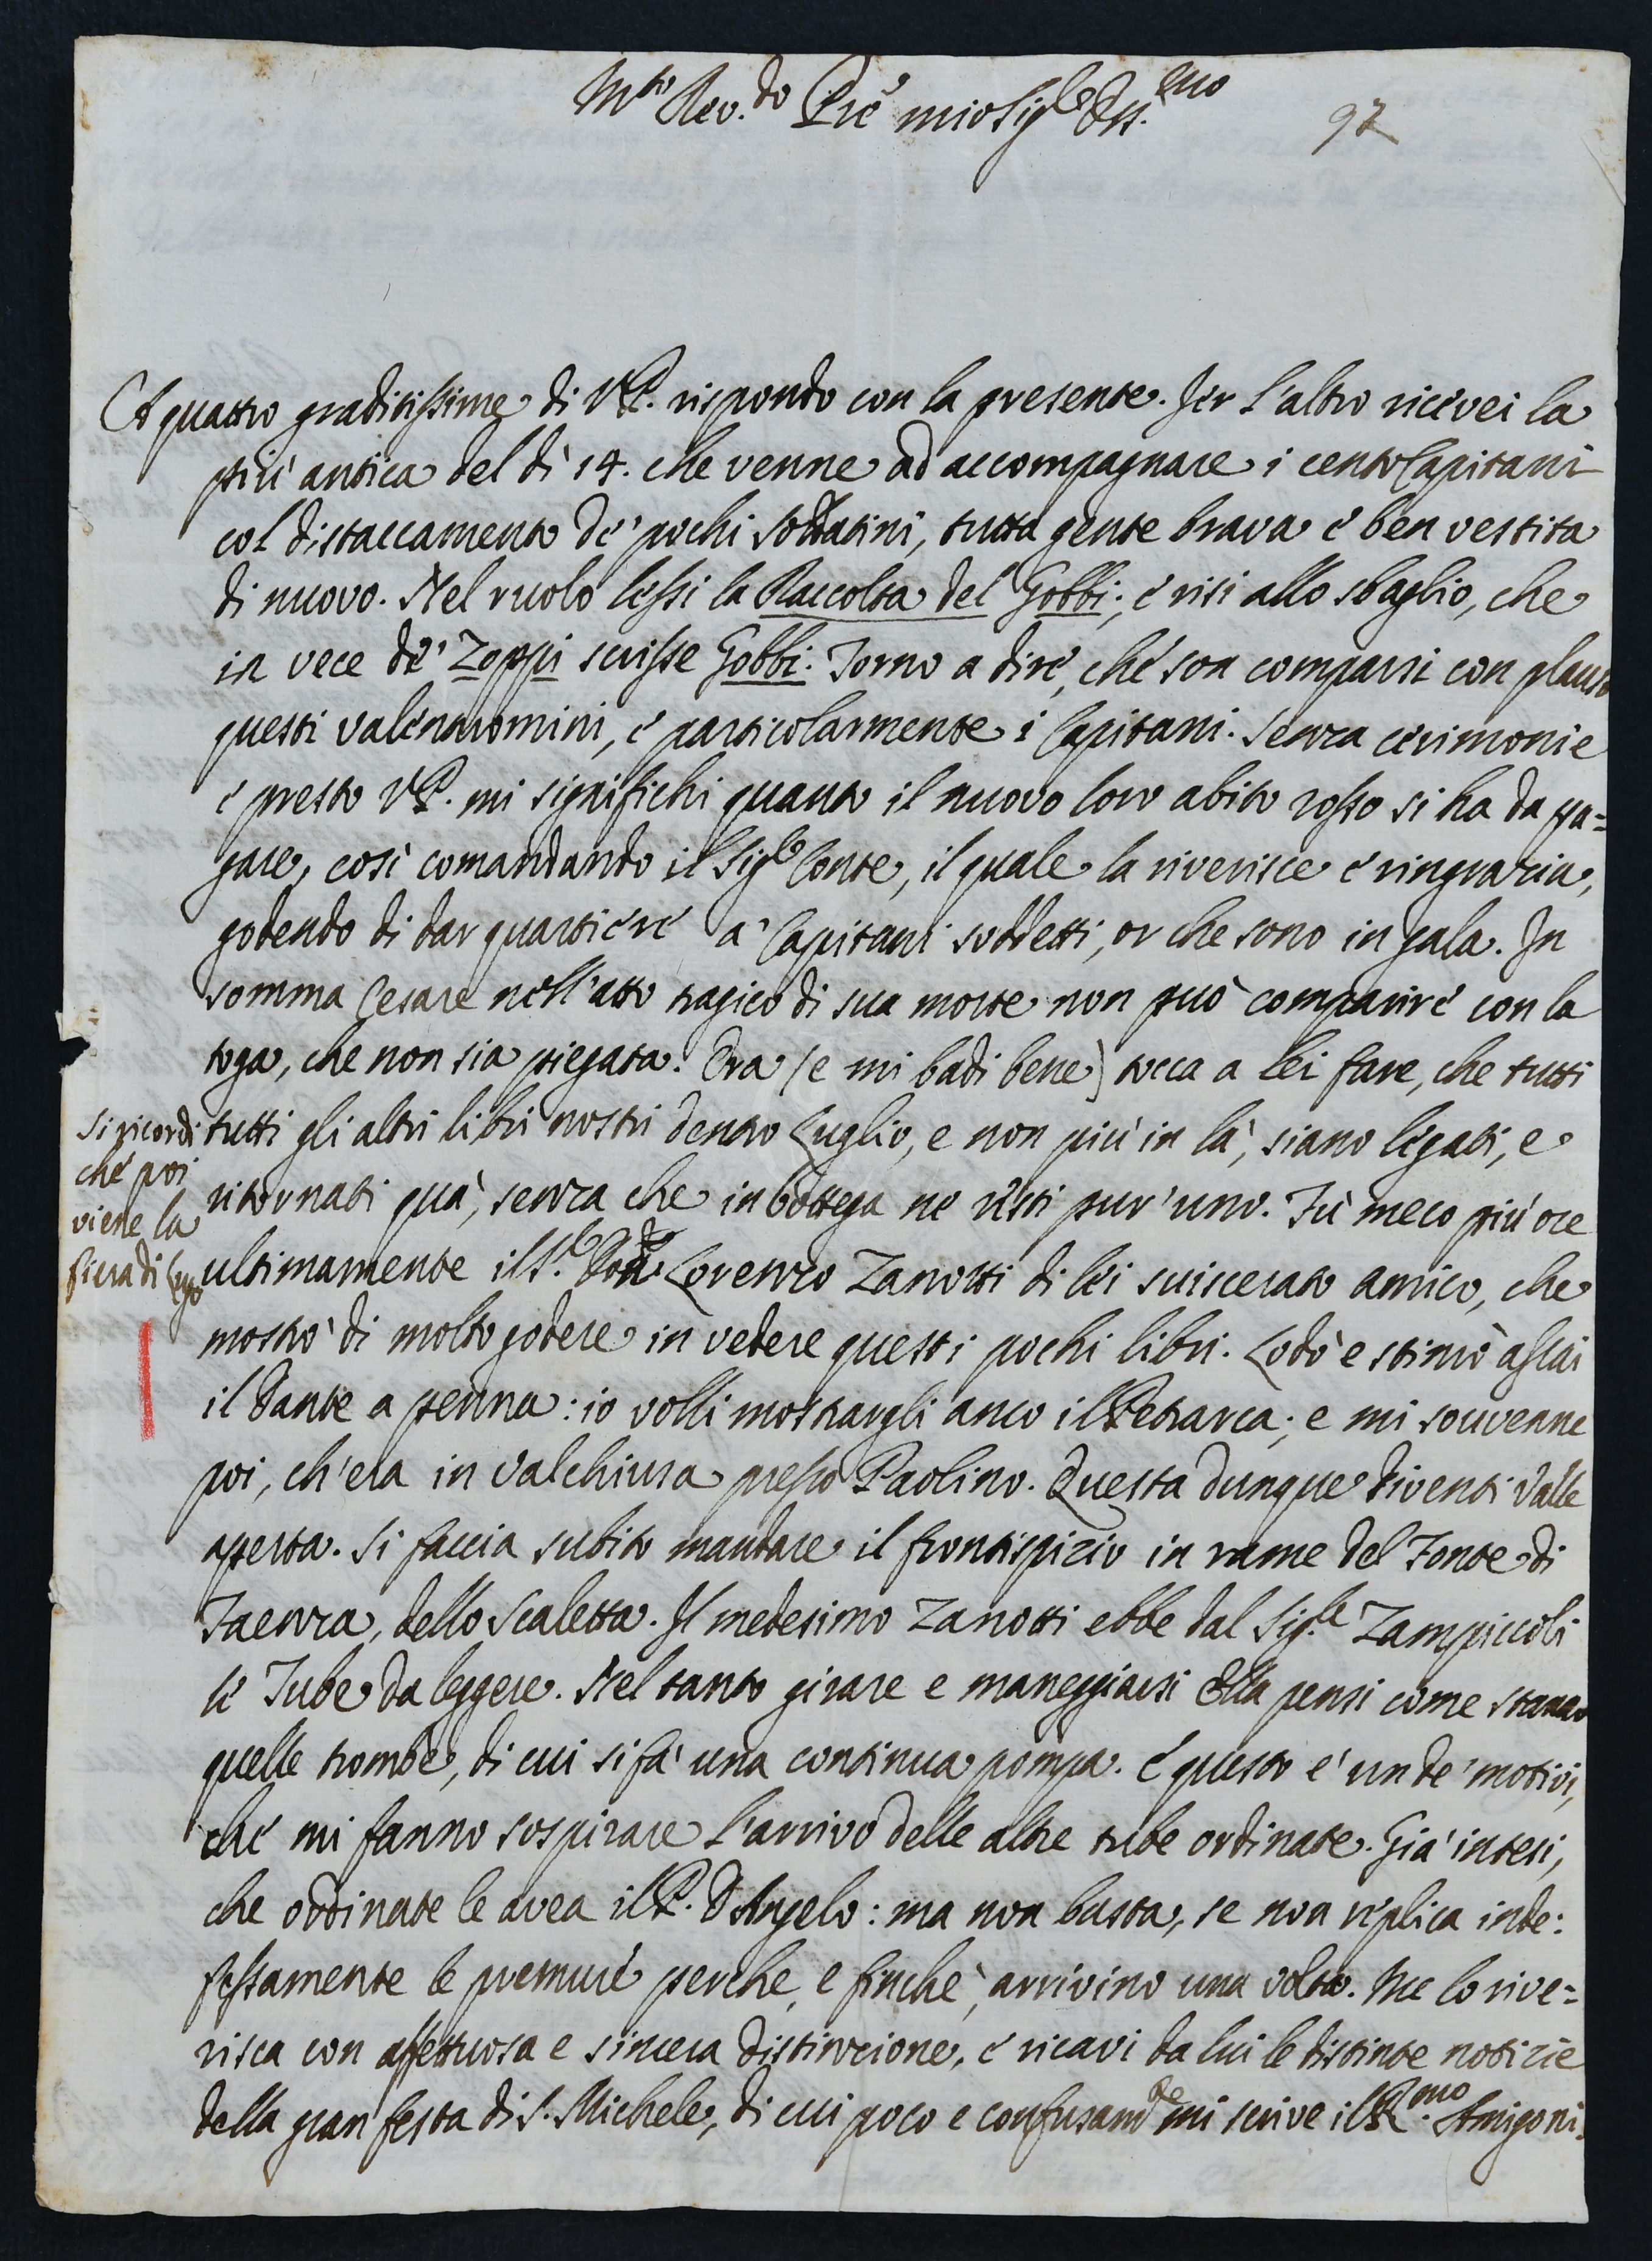 M.to Rev.do Pre mio Sig.re Oss.mo
97
A quattro graditissime di V.P. rispondo con la presente. Jer l'altro ricevei la
più antica del dì 14. che venne ad accompagnare i cento Capitani
col distaccamento de' pochi soldatini, tutta gente brava e ben vestita
di nuovo. Nel ruolo lessi la Raccolta del Gobbi; e risi allo sbaglio, che
in vece de' Zoppi scrisse Gobbi. Torno a dire, che son comparsi con plauso
questi valentuomini, e particolarmente i Capitani. Senza cerimonie
e presto V.P. mi significhi quanto il nuovo loro abito rosso si ha da pa=
gare, così comandando il Sig.re Conte, il quale la riverisce e ringrazia,
godendo di dar quartiere a' Capitani suddetti, or che sono in gala. In
somma Cesare nell'atto tragico di sua morte non può comparire con la
toga, che non sia piegata. Ora (e mi badi bene) tocca a lei fare, che tutti
tutti gli altri libri nostri dentro Luglio, e non più in là, siano legati, e
ritornati quà, senza che in bottega ne resti pur'uno. Fù meco più ore
ultimamente il S.r Lorenzo Zanotti di lei sviscerato amico, che
mostrò di molto godere in vedere questi pochi libri. Lodò e stimò assai
il Dante a penna: io volli mostrargli anco il Petrarca; e mi souvenne
poi, ch'era in Valchiusa presso Paolino. Questa dunque diventi Valle
aperta. Si faccia subito mandare il frontispizio in rame del Fonte di
Faenza, dello Scaletta. Il medesimo Zanotti ebbe dal Sig.re Zampiccoli
le Tube da leggere. Nel tanto girare e maneggiarsi Ella pensi come stanno
quelle trombe, di cui si fà una continua pompa. E questo è un de' motivi,
che mi fanno sospirare l'arrivo delle altre tube ordinate. Già intesi,
che ordinate le avea il P. D'Angelo: ma non basta, se non replica inde:
fessamente le premure perche, e finchè, arrivino una volta. Me lo rive=
risca con affettuosa e sincera distinzione, e ricavi da lui le distinte notizie
della gran festa di S. Michele, di cui poco e confusam.te mi scrive il R.mo Amigoni.
Si ricordi
che poi
viene la
fiera di Lugo